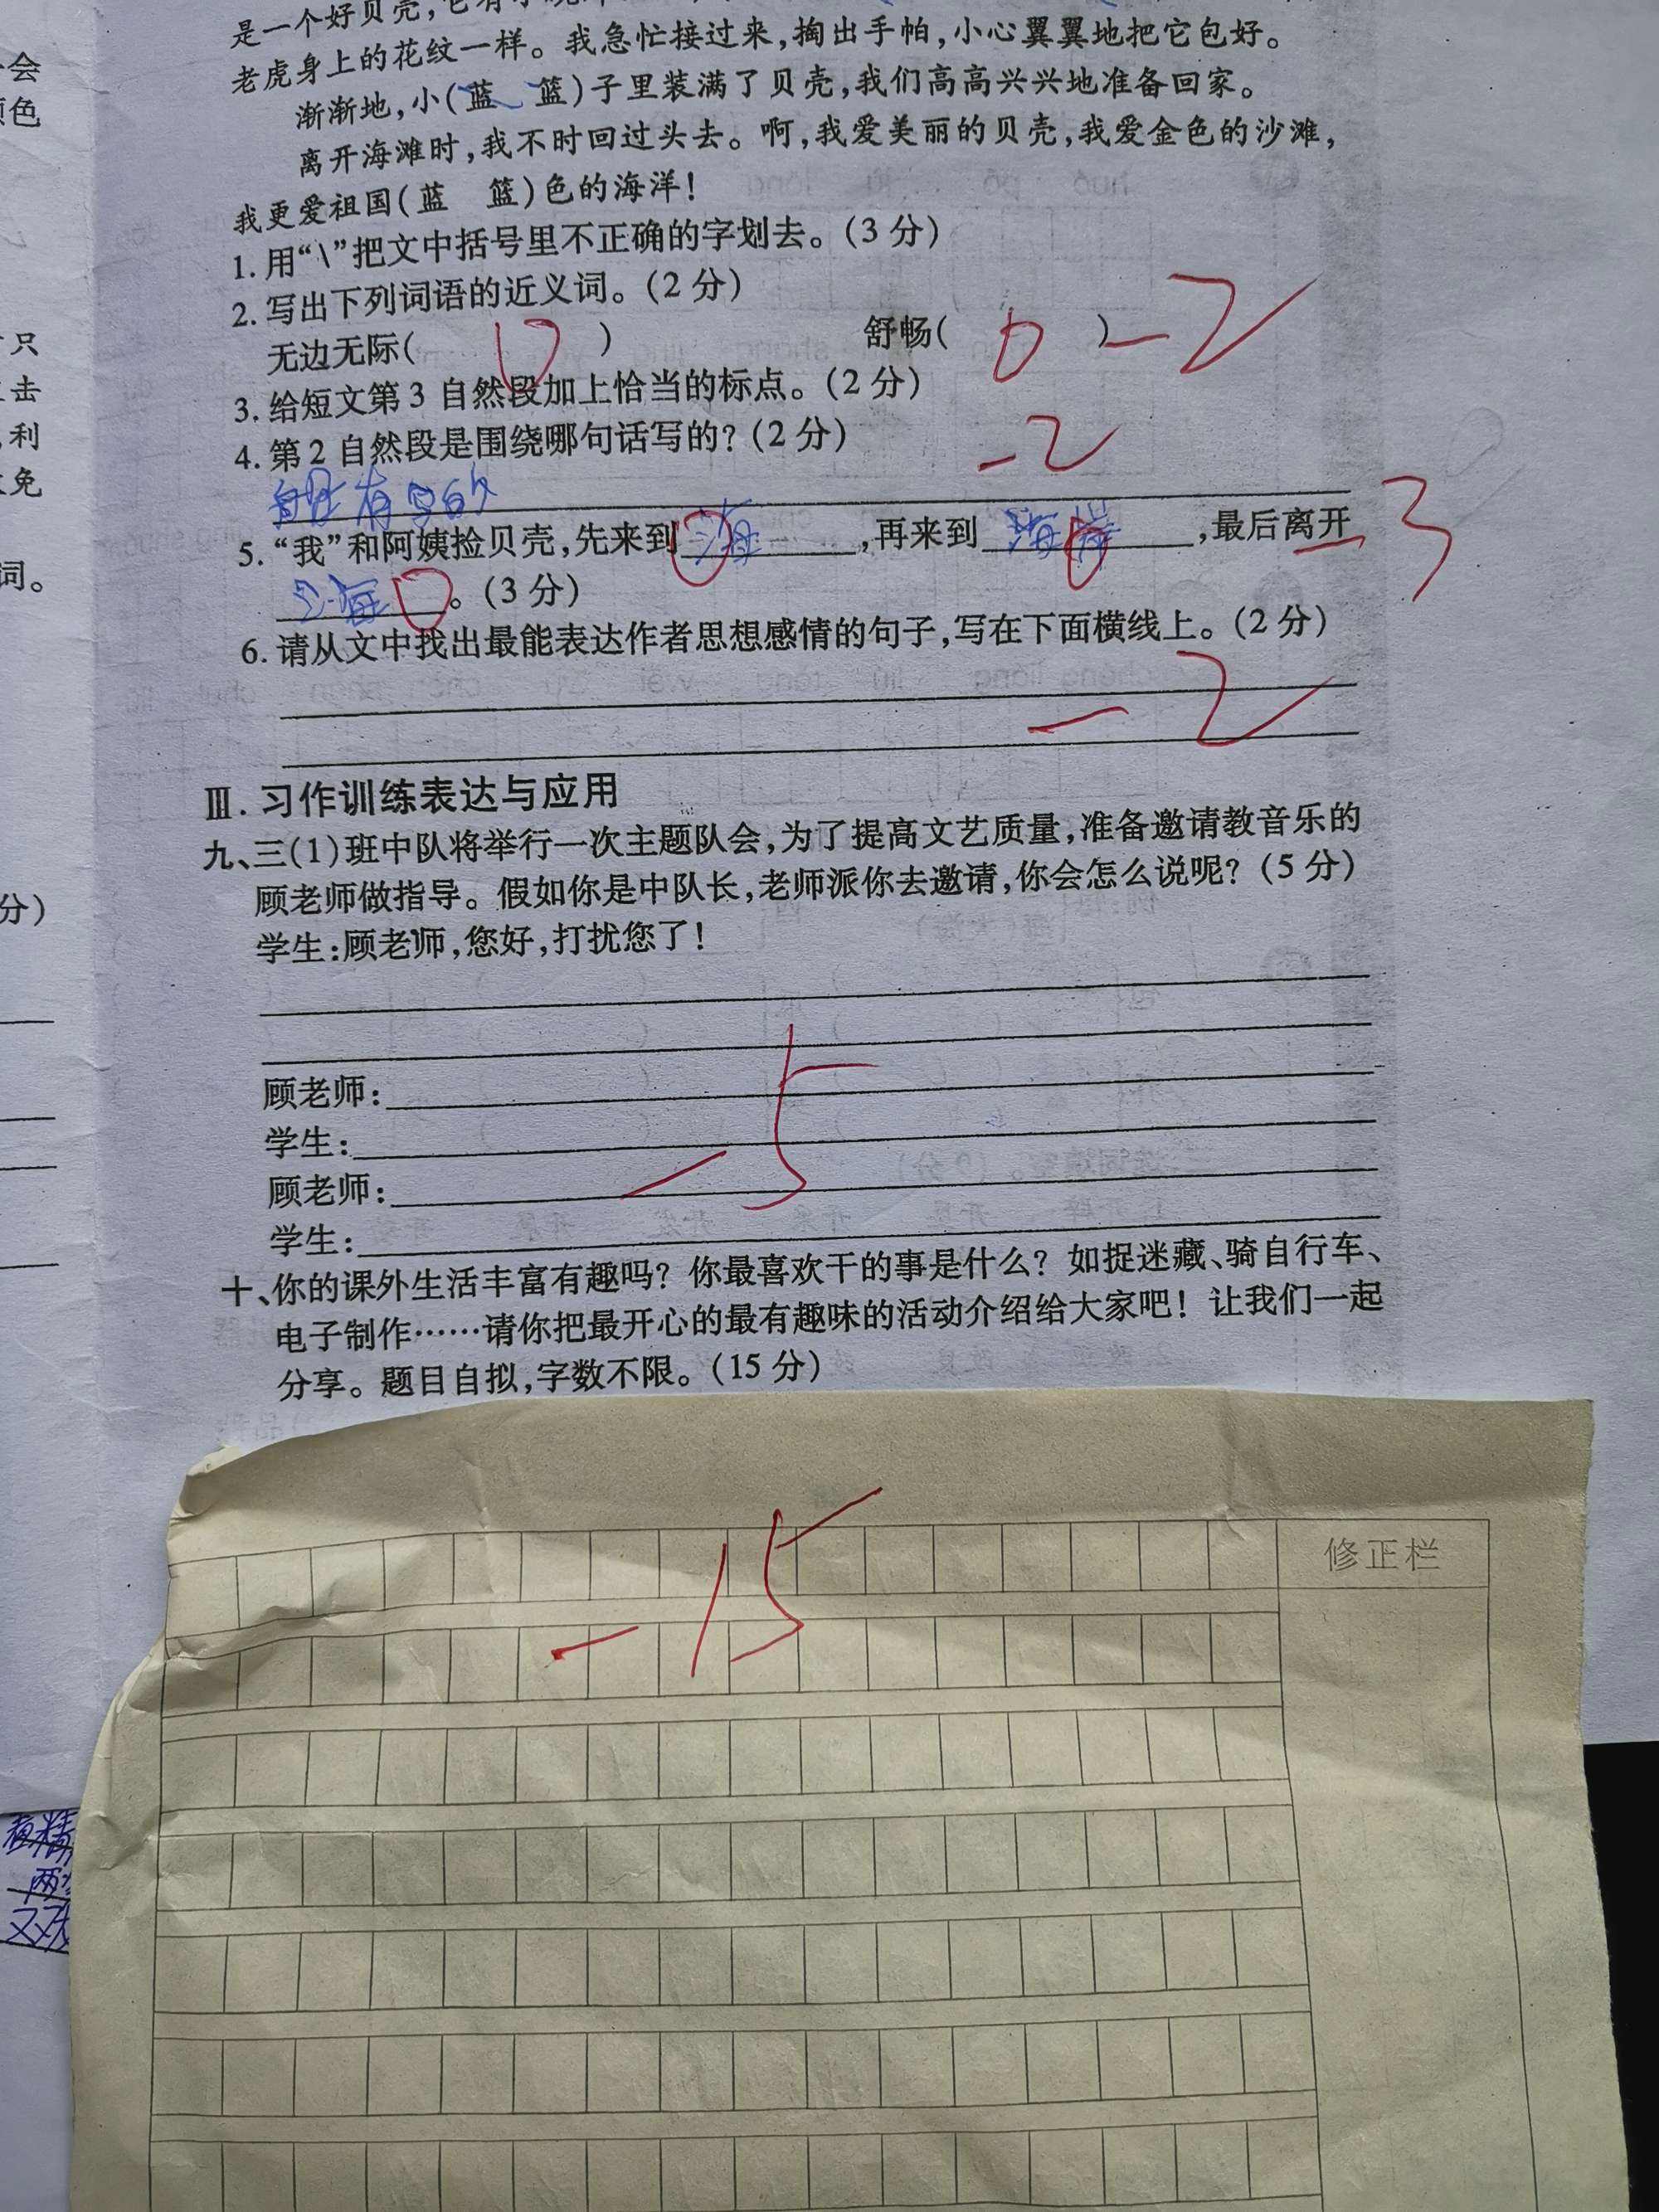 是一个好贝壳,它有
老虎身上的花纹一样。我急忙接过来,掏出手帕,小心翼翼地把它包好。
渐渐地,小(蓝 篮)子里装满了贝壳,我们高高兴兴地准备回家。
离开海滩时,我不时回过头去。啊,我爱美丽的贝壳,我爱金色的沙滩,
我更爱祖国(蓝 篮)色的海洋!
1. 用“\”把文中括号里不正确的字划去。(3 分)
2. 写出下列词语的近义词。(2 分)
无边无际( 0 ) 舒畅( 0 ) -2
3. 给短文第 3 自然段加上恰当的标点。(2 分)
4. 第 2 自然段是围绕哪句话写的?(2 分) -2
有写的
5. “我”和阿姨捡贝壳,先来到 海 ,再来到 海岸 ,最后离开 -3
海 。(3 分)
6. 请从文中找出最能表达作者思想感情的句子,写在下面横线上。(2 分)
-2
Ⅲ. 习作训练表达与应用
九、三(1)班中队将举行一次主题队会,为了提高文艺质量,准备邀请教音乐的
顾老师做指导。假如你是中队长,老师派你去邀请,你会怎么说呢? (5 分)
学生:顾老师,您好,打扰您了!
顾老师:
学生:
-5
顾老师:
学生:
十、你的课外生活丰富有趣吗? 你最喜欢干的事是什么? 如捉迷藏、骑自行车、
电子制作……请你把最开心的最有趣味的活动介绍给大家吧! 让我们一起
分享。题目自拟,字数不限。(15 分)
-15
修正栏
会
色
只
击
利
免
词。
分)
两